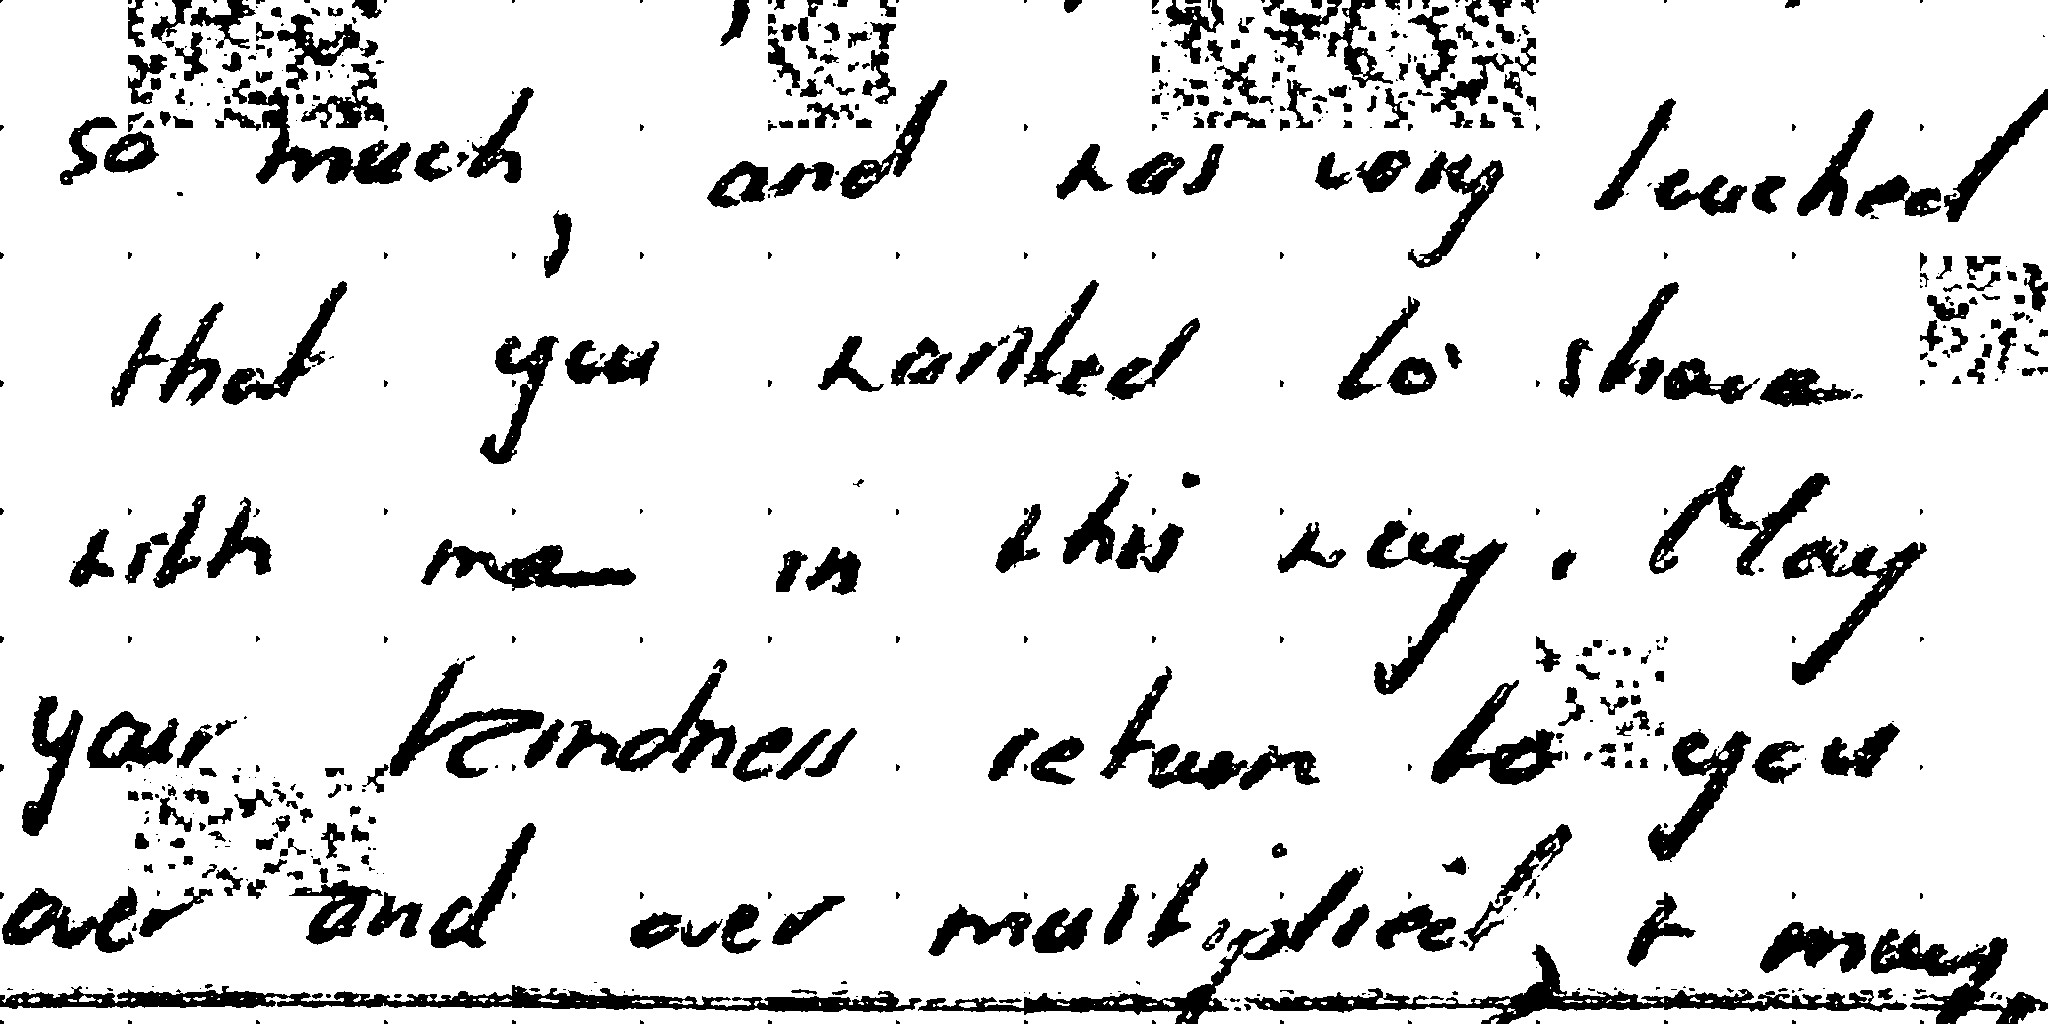 so much, and was very touched
that you wanted to share
with me in this way. May
your kindness return to you
over and over multiplied, & may